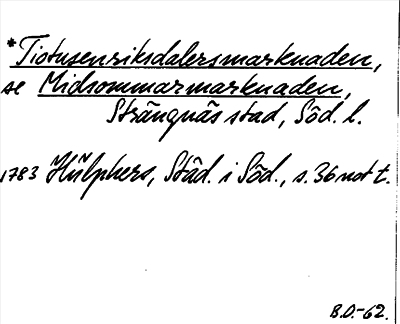 *Tiotusenriksdalersmarknaden,
se Midsommarmarknaden,
Strängnäs stad, Söd. l.
1783 Hülphers, Städ. i Söd., s. 36 not t.
B.D.-62.